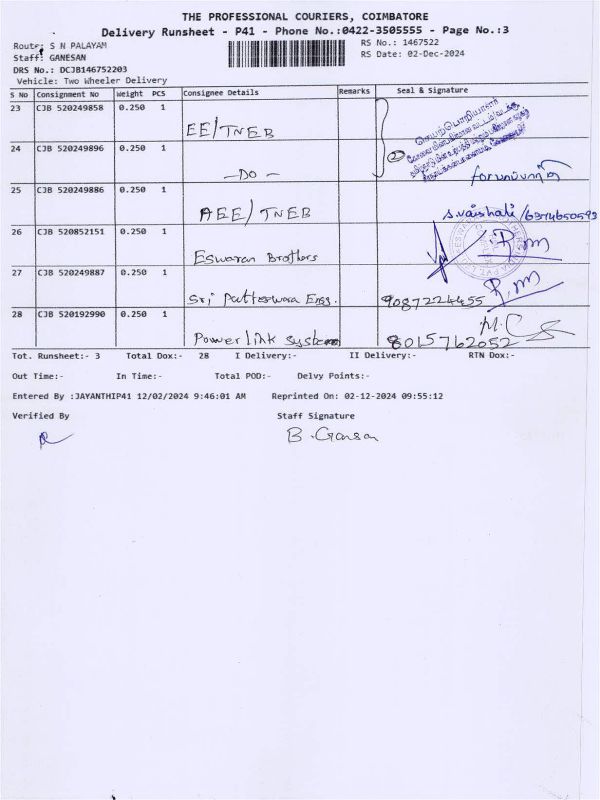 THE PROFESSIONAL COURIERS, COIMBATORE
Delivery Runsheet - P41 - Phone No.:0422-3505555 - Page No.:3
Route: S N PALAYAM RS No.: 1467522
Staff: GANESAN RS Date: 02-Dec-2024
DRS No.: DCJB146752203
Vehicle: Two Wheeler Delivery
S No Consignment No Weight PCS Consignee Details Remarks Seal & Signature
23 CJB 520249858 0.250 1 EE/TNEB
24 CJB 520249896 0.250 1 -DO- 2
25 CJB 520249886 0.250 1 AEE/TNEB S.Vaishali /6374650593
26 CJB 520852151 0.250 1 Eswaran Brothers
27 CJB 520249887 0.250 1 Sri Patteswara Engg. 9087224455
28 CJB 520192990 0.250 1 Powerlink System 8015762052
Tot. Runsheet:- 3 Total Dox:- 28 I Delivery:- II Delivery:- RTN Dox:-
Out Time:- In Time:- Total POD:- Delvy Points:-
Entered By :JAYANTHIP41 12/02/2024 9:46:01 AM Reprinted On: 02-12-2024 09:55:12
Verified By Staff Signature
B.Ganesan